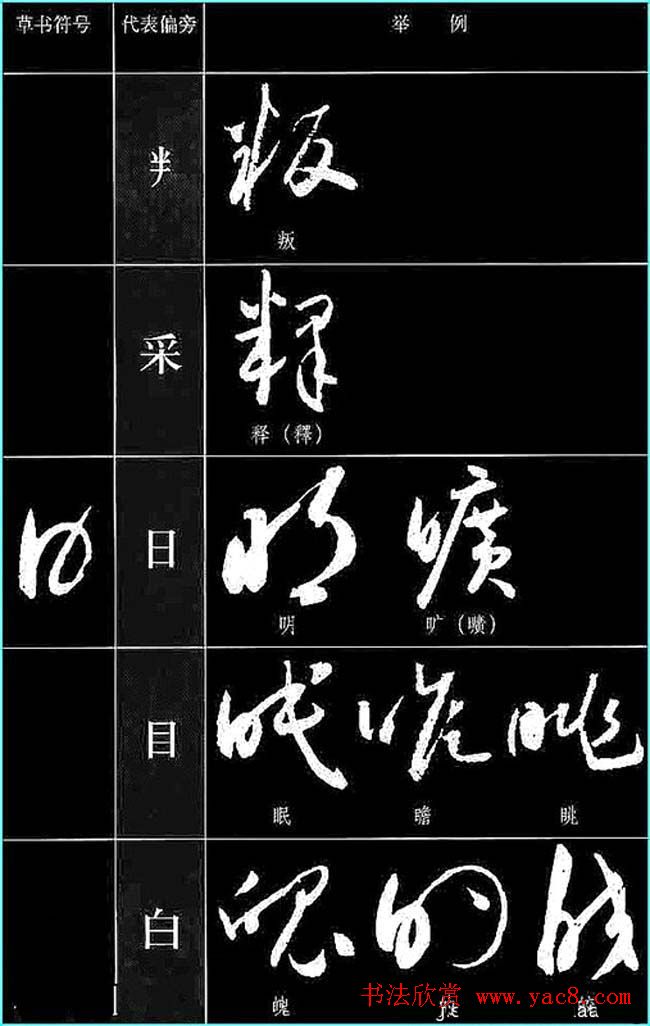 草书符号 代表偏旁 举 例
叛
叛
采 释
释（釋）
日 明 曠
明 旷（曠）
目 眠 瞻 眺
眠 瞻 眺
白 魄 的
魄
书法欣赏 www.yac8.com